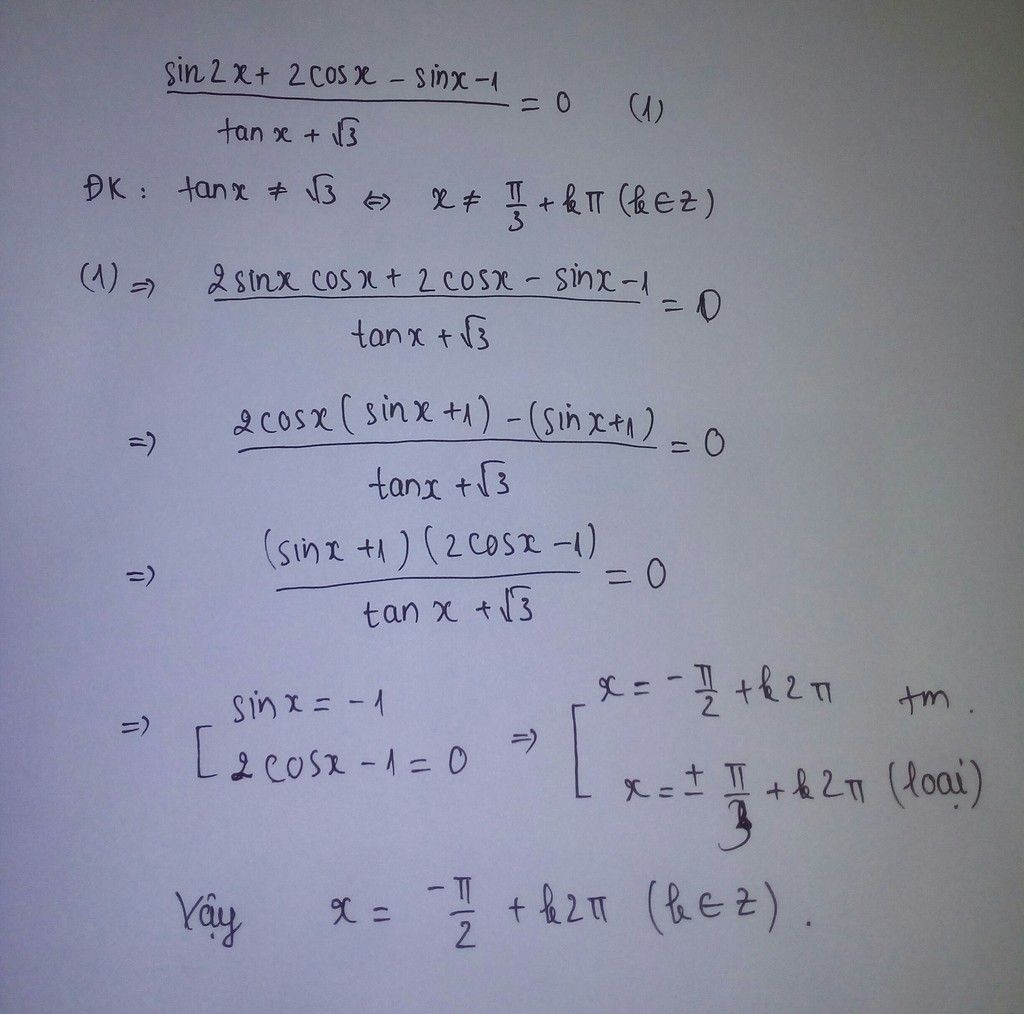 (sin2x + 2cosx - sinx - 1)/(tanx + √3) = 0 (1)
ĐK: tanx ≠ √3 ⇔ x ≠ π/3 + kπ (k∈Z)
(1) ⇒ (2sinx cosx + 2cosx - sinx - 1)/(tanx + √3) = 0
⇒ (2cosx(sinx+1) - (sinx+1))/(tanx + √3) = 0
⇒ ((sinx+1)(2cosx-1))/(tanx + √3) = 0
⇒ [ sinx = -1 ⇒ [ x = -π/2 + k2π tm.
2cosx - 1 = 0 x = ± π/3 + k2π (loại)
Vậy x = -π/2 + k2π (k∈Z).